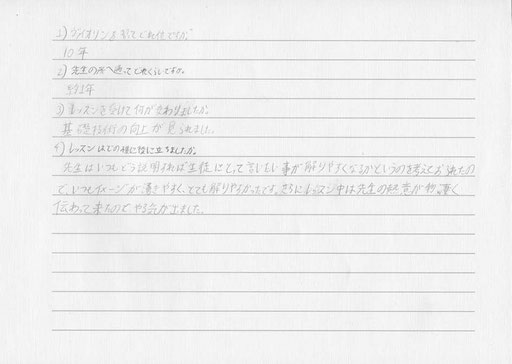 1) ヴァイオリンを習てどれ位ですか。
10年
2) 先生の所へ通ってどれくらいですか。
約3年
3) レッスンを受けて何が変わりましたか。
基礎技術の向上が見られました。
4) レッスンはどの様に役に立ちましたか。
先生はいつもどう説明すれば生徒にとって言いたい事が解りやすくなるかというのを考えて
で、いつもイメージが湧きやすく、とても解りやすかったです。さらにレッスン中は先生の熱意が物凄く
伝わって来るので、やる気がでました。